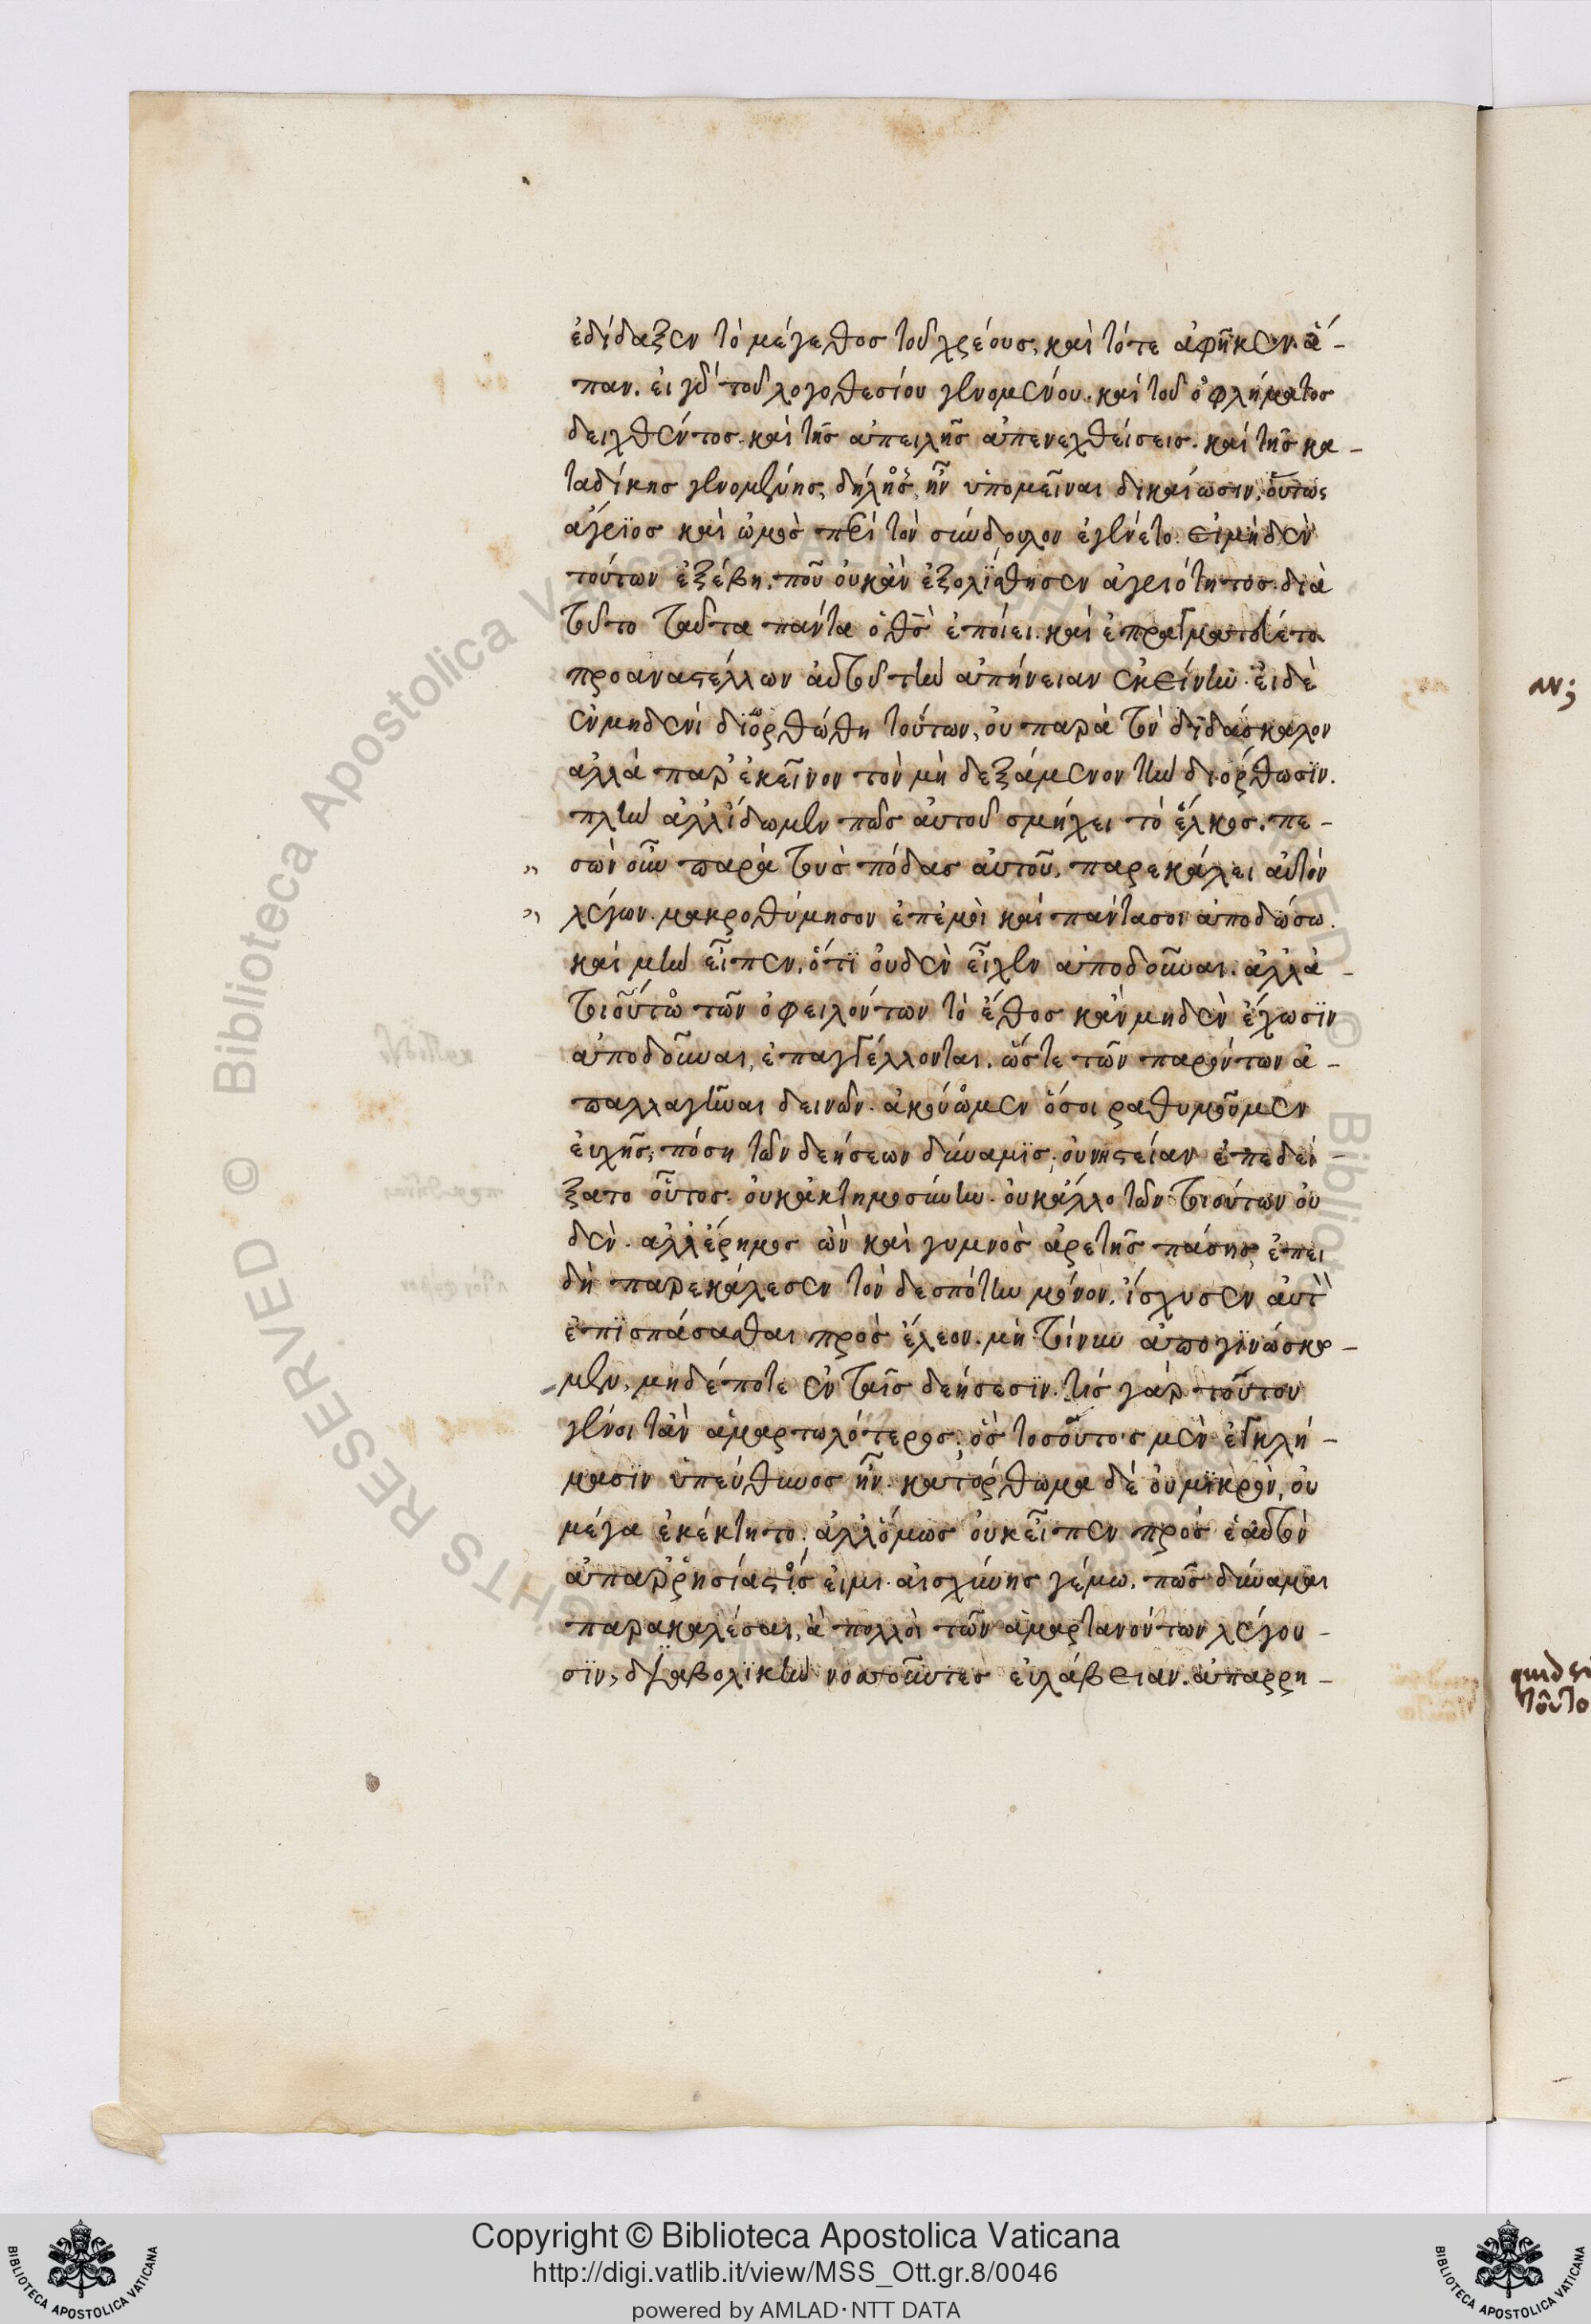 ἐδίδαξεν τὸ μέγεθος τοῦ χρέους, καὶ τότε ἀφῆκεν ἅ-
παν. εἰ γὰρ τοῦ λογοθεσίου γενομένου. καὶ τοῦ ὀφλήματος
δειχθέντος. καὶ τῆς ἀπειλῆς ἀπενεχθείσεις. καὶ τῆς κα-
ταδίκης γενομένης, δήλης, ἣν ὑπομεῖναι δικαίωσιν, οὕτως
ἄγριος καὶ ὠμὸς περὶ τὸν σύνδουλον ἐγένετο. εἰ μηδὲν
τούτων ἐξέβη. ποῦ οὐκ ἂν ἐξολίσθησεν ἀγριότητος. διὰ
τοῦτο ταῦτα πάντα ὁ θς ἐποίει. καὶ ἐπραγματεύετο
προαναστέλλων αὐτοῦ τὴν ἀπήνειαν ἐκείνην. εἰ δὲ
ἐν μηδενὶ διορθώθη τούτων, οὐ παρὰ τὸν διδάσκαλον
ἀλλὰ παρ' ἐκεῖνον τὸν μὴ δεξάμενον τὴν διόρθωσιν.
πλὴν ἀλλ' ἴδωμεν πῶς αὐτοῦ σμήχει τὸ ἕλκος. πε-
" σὼν οὖν παρὰ τοὺς πόδας αὐτοῦ, παρεκάλει αὐτὸν
" λέγων. μακροθύμησον ἐπ' ἐμοὶ καὶ πάντα σοι ἀποδώσω.
καὶ μὴν εἶπεν, ὅτι οὐδὲν εἶχεν ἀποδοῦναι. ἀλλὰ -
τοιοῦτο τῶν ὀφειλόντων τὸ ἔθος κἂν μηδὲν ἔχωσιν
ἀποδοῦναι, ἐπαγγέλλονται. ὥστε τῶν παρόντων ἀ-
παλλαγῆναι δεινῶν. ἀκούωμεν ὅσοι ραθυμοῦμεν
εὐχῆς, πόση τῶν δεήσεων δύναμις, οὐ νηστείαν ἐπεδεί-
ξατο οὗτος. οὐκ ἀκτημοσύνην. οὐκ ἄλλο τῶν τοιούτων οὐ
δὲν. ἀλλ' ἔρημος ὢν καὶ γυμνὸς ἀρετῆς πάσης, ἐπει
δὴ παρεκάλεσεν τὸν δεσπότην μόνον, ἴσχυσεν αὐτὸν
ἐπισπάσασθαι πρὸς ἔλεον. μὴ τοίνυν ἀπογινώσκο-
μεν, μηδέποτε ἐν ταῖς δεήσεσιν. τίς γὰρ τούτου
γένοιτ' ἂν ἁμαρτωλότερος, ὃς τοσούτοις μὲν ἐγκλή-
μασιν ὑπεύθυνος ἦν. κατόρθωμα δὲ οὐ μικρὸν, οὐ
μέγα ἐκέκτητο. ἀλλ' ὅμως οὐκ εἶπεν πρὸς ἑαυτὸν
ἀπαρρησίαστός εἰμι. αἰσχύνης γέμω. πῶς δύναμαι
παρακαλέσαι, ἃ πολλοὶ τῶν ἁμαρτανόντων λέγου-
σιν, διαβολικὴν νοσοῦντες εὐλάβειαν. ἀπαρρη-
Copyright © Biblioteca Apostolica Vaticana
http://digi.vatlib.it/view/MSS_Ott.gr.8/0046
powered by AMLAD·NTT DATA